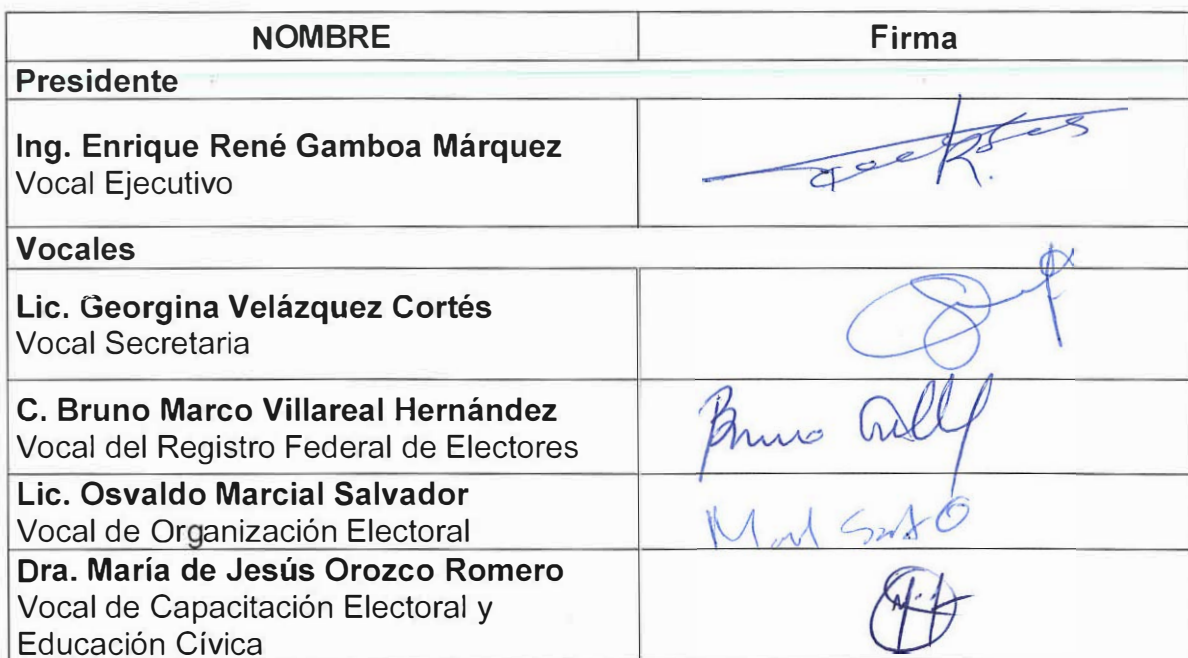 NOMBRE Firma
Presidente
Ing. Enrique René Gamboa Márquez
Vocal Ejecutivo
Vocales
Lic. Georgina Velázquez Cortés
Vocal Secretaria
C. Bruno Marco Villareal Hernández
Vocal del Registro Federal de Electores
Bruno
Lic. Osvaldo Marcial Salvador
Vocal de Organización Electoral
Dra. María de Jesús Orozco Romero
Vocal de Capacitación Electoral y
Educación Cívica